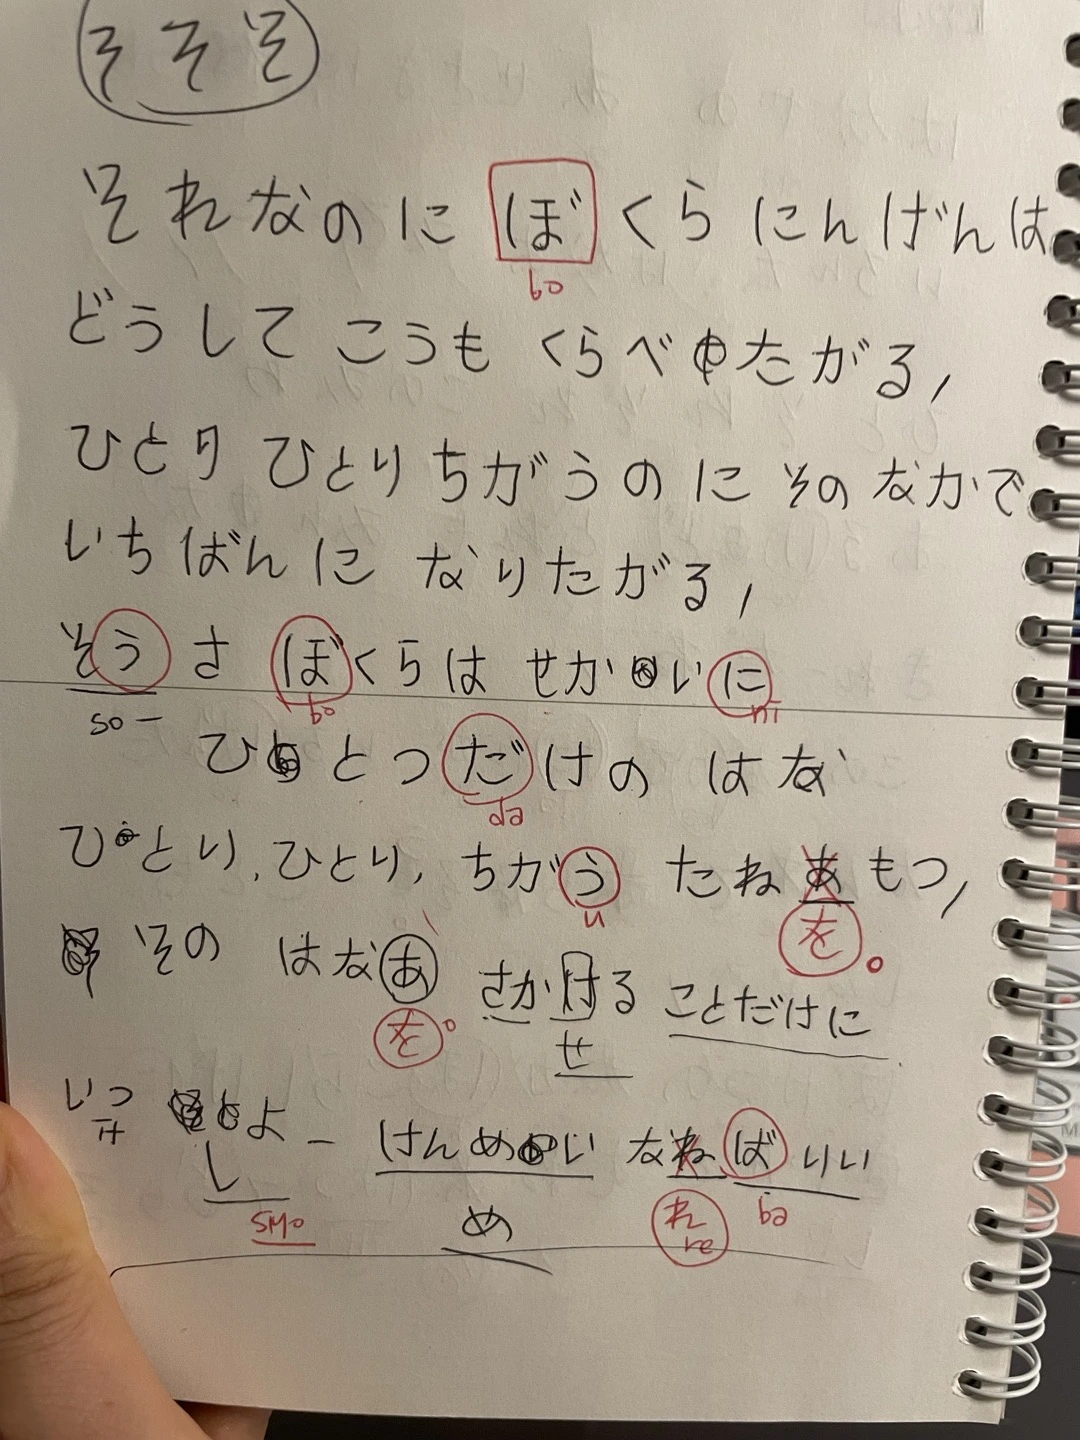 そそそ
それなのに ぼくら にんげんは
bo
どうして こうも くらべたがる,
ひとり ひとり ちがうのに そのなかで
いちばんに なりたがる,
そうさ ぼくらは せかいに
so— bo ni
ひとつだけの はな
da
ひとり, ひとり, ちがう たね あ もつ,
u を。
その はなあ さかける ことだけに
を。 せ
いつ よ— けんめい なねばいい
し
smo め れ ba
re